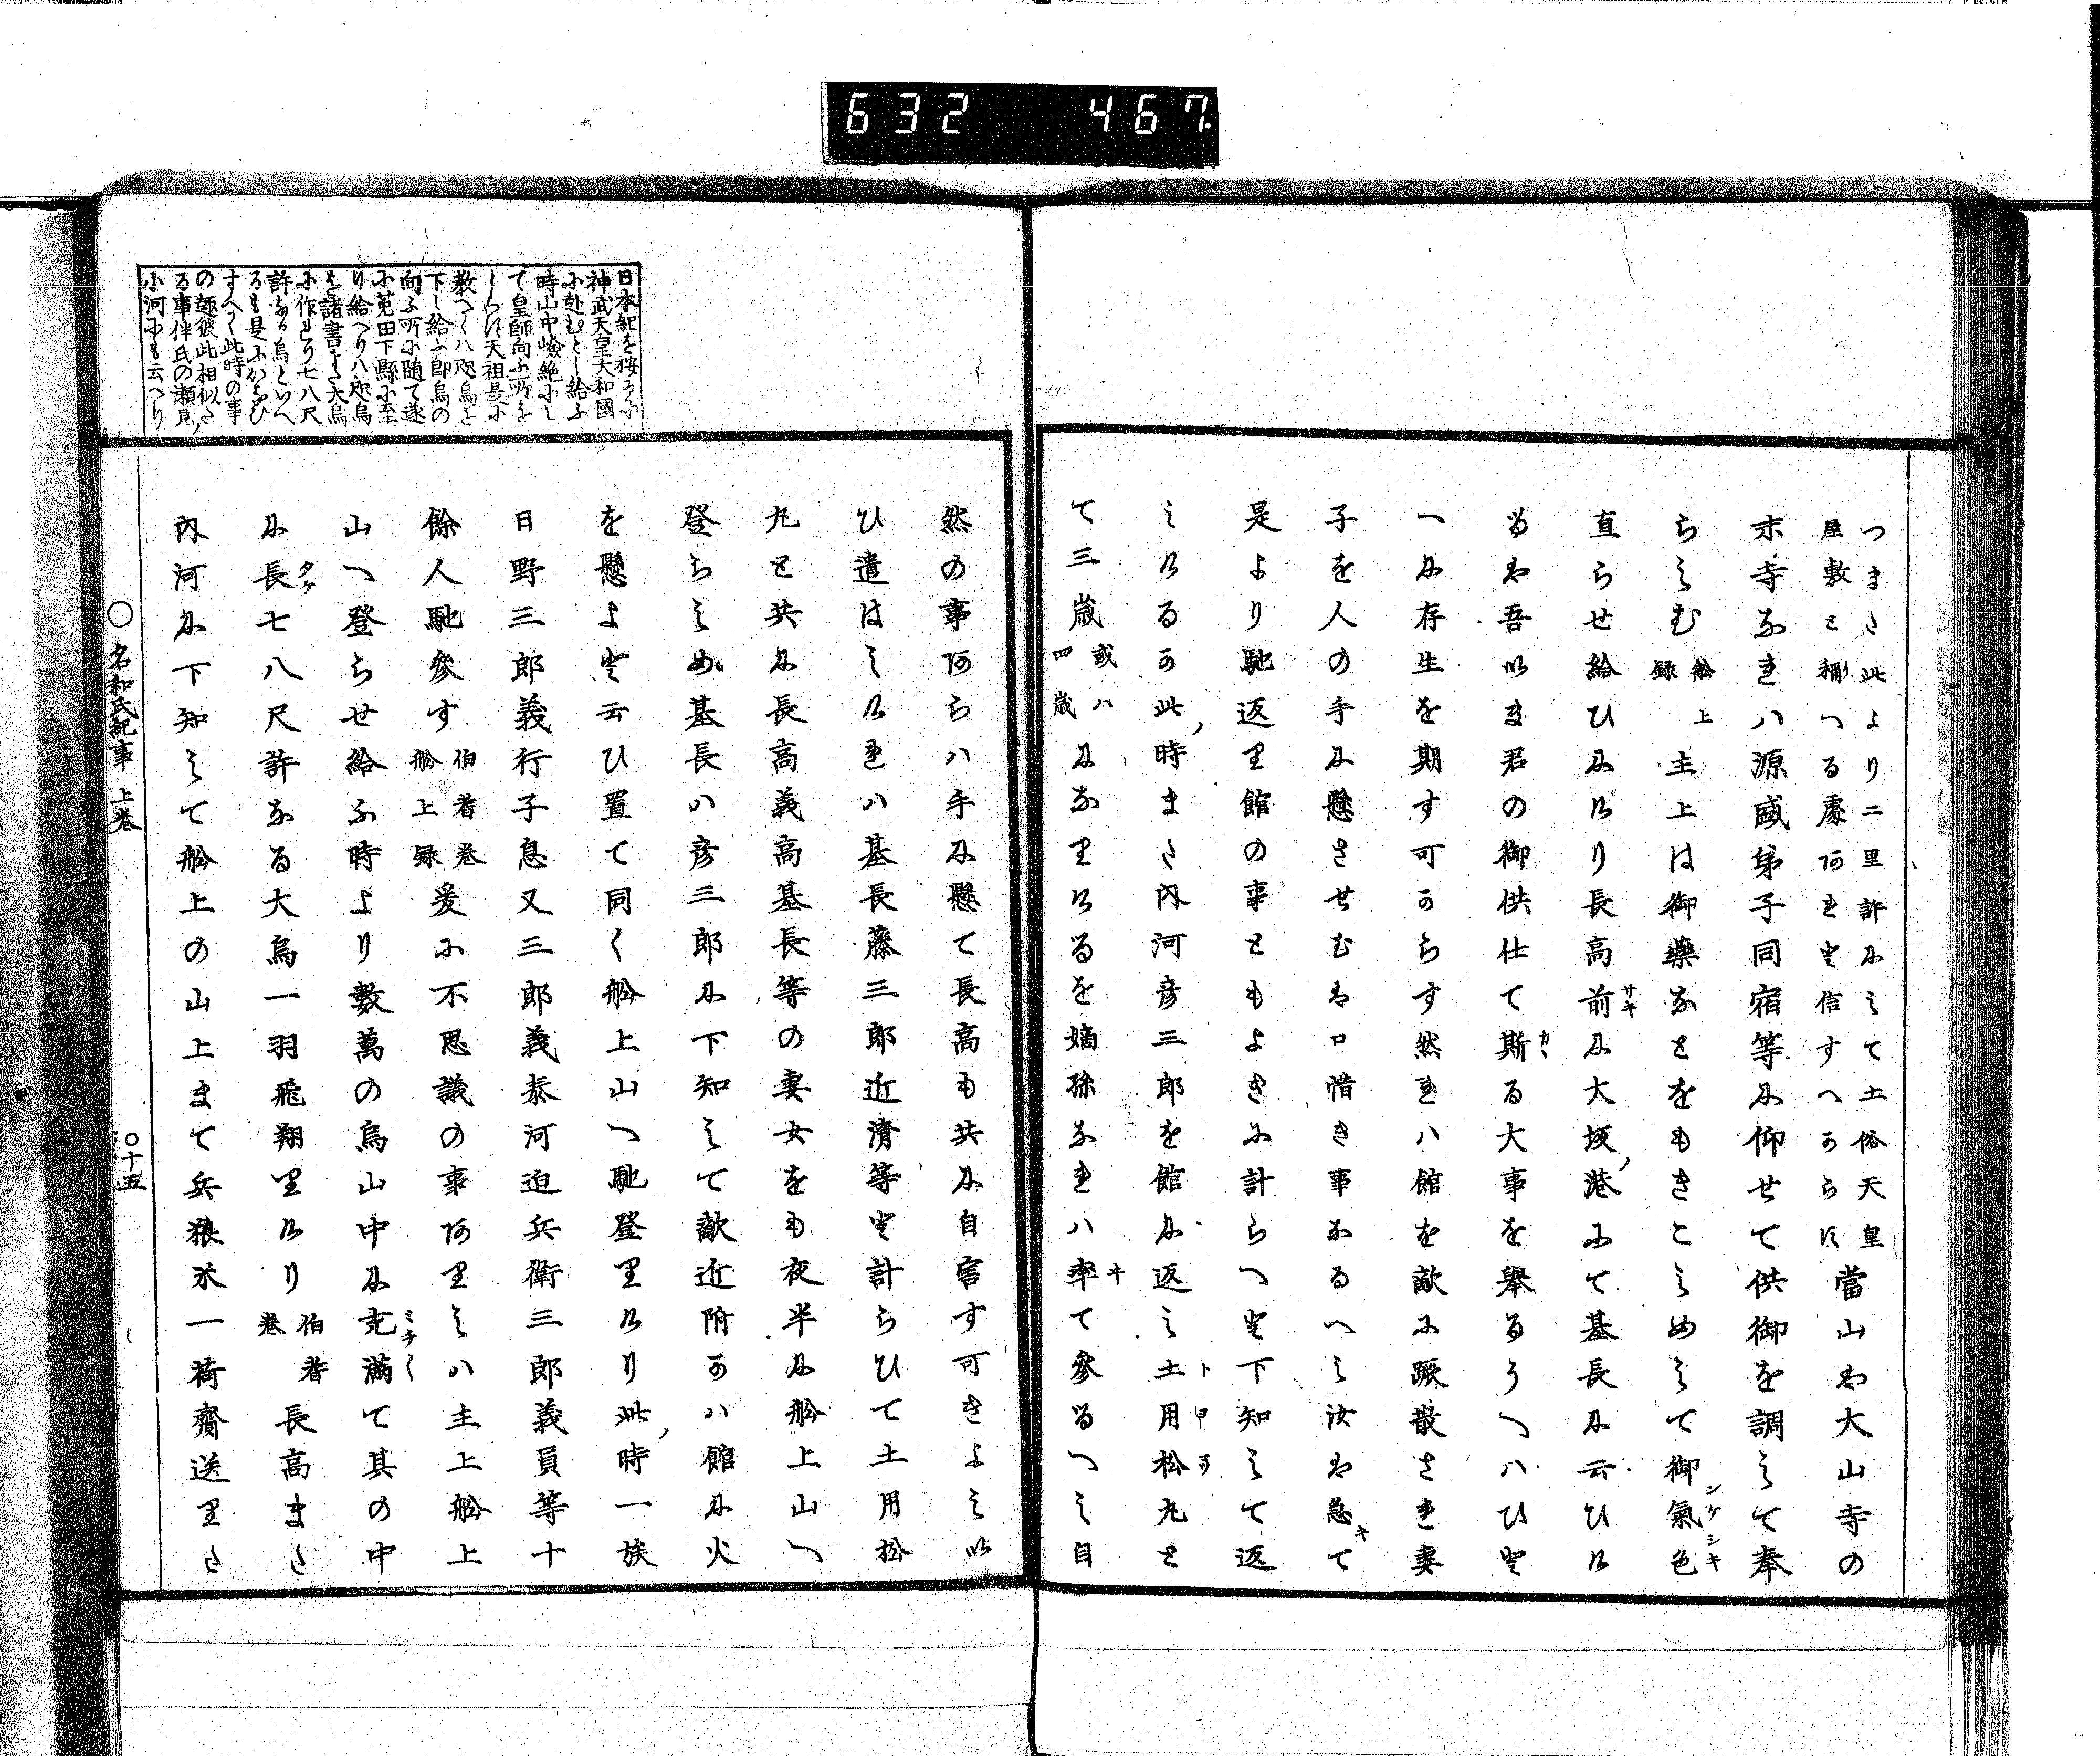 632 467.
つまた此より二里許にして土俗天皇
屋敷と稱へる處阿れと信すへからす
當山は大山寺の
末寺なれハ源盛弟子同宿等に仰せて供御を調して奉
らしむ
舩上
録
主上は御藥なとをもきこしめして御氣色
ンケシキ
直らせ給ひにけり長高前に大坂港にて基長に云ひけ
サキ
るは吾いま君の御供仕て斯る大事を舉るうへハひと
カヽ
へに存生を期す可からす然れハ館を敵に蹶散され妻
子を人の手に懸させむは口惜き事なるへし汝は急て
キ
是より馳返里館の事ともよきに計らへと下知して返
しける可此時また内河彦三郎を館に返し土用松丸と
トヨマ
て三歳
或ハ
四歳
になりけるを嫡孫なれハ率て參るへし自
ヰ
然の事阿らハ手に懸て長高も共に自害す可きよしい
ひ遣はしけれハ基長藤三郎近清等と計らひて土用松
丸と共に長高義高基長等の妻女をも夜半に舩上山へ
登らしめ基長ハ彦三郎に下知して敵近附かハ館に火
を懸よと云ひ置て同く舩上山へ馳登里けり此時一族
日野三郎義行子息又三郎義泰河迫兵衛三郎義員等十
餘人馳參す
伯耆巻
舩上録
爰に不思議の事阿里しハ主上舩上
山へ登らせ給ふ時より數萬の烏山中に充滿て其の中
ミチ〱
に長七八尺許なる大烏一羽飛翔里けり
タケ
伯耆
巻
長高また
内河に下知して舩上の山上まて兵粮米一荷齎送里た
日本紀を按るに
神武天皇大和國
に赴むとし給ふ
時山中嶮絶にし
て皇師向ふ所を
しらす天祖是に
教へて八咫烏を
下し給ふ即烏の
向ふ所に随て遂
に菟田下縣に至
り給へり八咫烏
を諸書また大烏
に作れり七八尺
許なる烏といへ
るも是にかよひ
すへて此時の事
の趣彼此相似た
る事伴氏の瀬見
小河にも云へり
○名和氏紀事 上巻
○十五